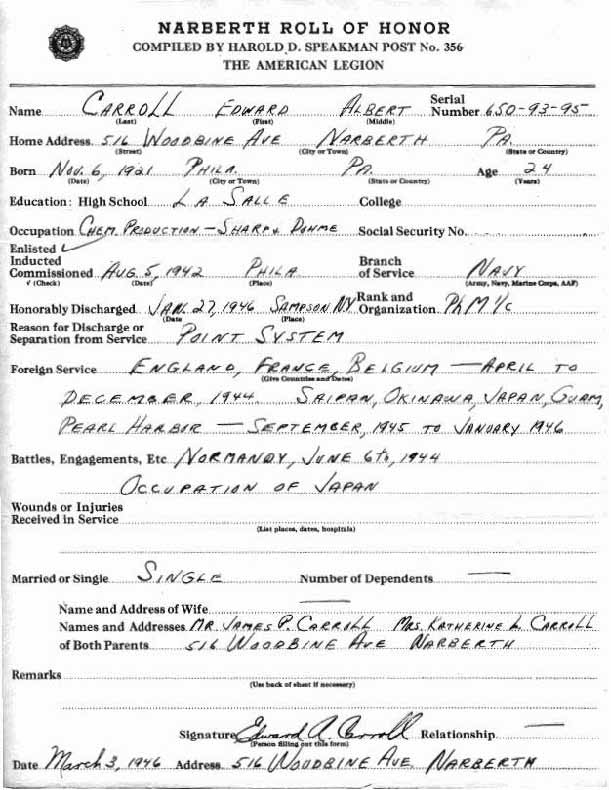 NARBERTH ROLL OF HONOR
COMPILED BY HAROLD D. SPEAKMAN POST No. 356
THE AMERICAN LEGION
Name CARROLL EDWARD ALBERT Serial Number 650-93-95
(Last) (First) (Middle)
Home Address 516 WOODBINE AVE NARBERTH PA.
(Street) (City or Town) (State or Country)
Born NOV. 6, 1921 PHILA. PA. Age 24
(Date) (City or Town) (State or Country) (Years)
Education: High School LA SALLE College
Occupation CHEM. PRODUCTION — SHARP & DOHME Social Security No.
Enlisted ✓
Inducted Branch
Commissioned AUG. 5, 1942 PHILA of Service NAVY
✓ (Check) (Date) (Place) (Army, Navy, Marine Corps, AAF)
Honorably Discharged JAN. 27, 1946 SAMPSON NY Rank and Organization PhM 1/c
(Date (Place)
Reason for Discharge or
Separation from Service POINT SYSTEM
Foreign Service ENGLAND, FRANCE, BELGIUM — APRIL TO
(Give Countries and Dates)
DECEMBER, 1944. SAIPAN, OKINAWA, JAPAN, GUAM,
PEARL HARBOR — SEPTEMBER, 1945 TO JANUARY 1946
Battles, Engagements, Etc NORMANDY, JUNE 6th, 1944
OCCUPATION OF JAPAN
Wounds or Injuries
Received in Service
(List places, dates, hospitals)
Married or Single SINGLE Number of Dependents —
Name and Address of Wife —
Names and Addresses MR. JAMES P. CARROLL MRS. KATHERINE L. CARROLL
of Both Parents 516 WOODBINE AVE NARBERTH
Remarks
(Use back of sheet if necessary)
Signature Edward A. Carroll Relationship —
(Person filling out this form)
Date March 3, 1946 Address 516 WOODBINE AVE. NARBERTH